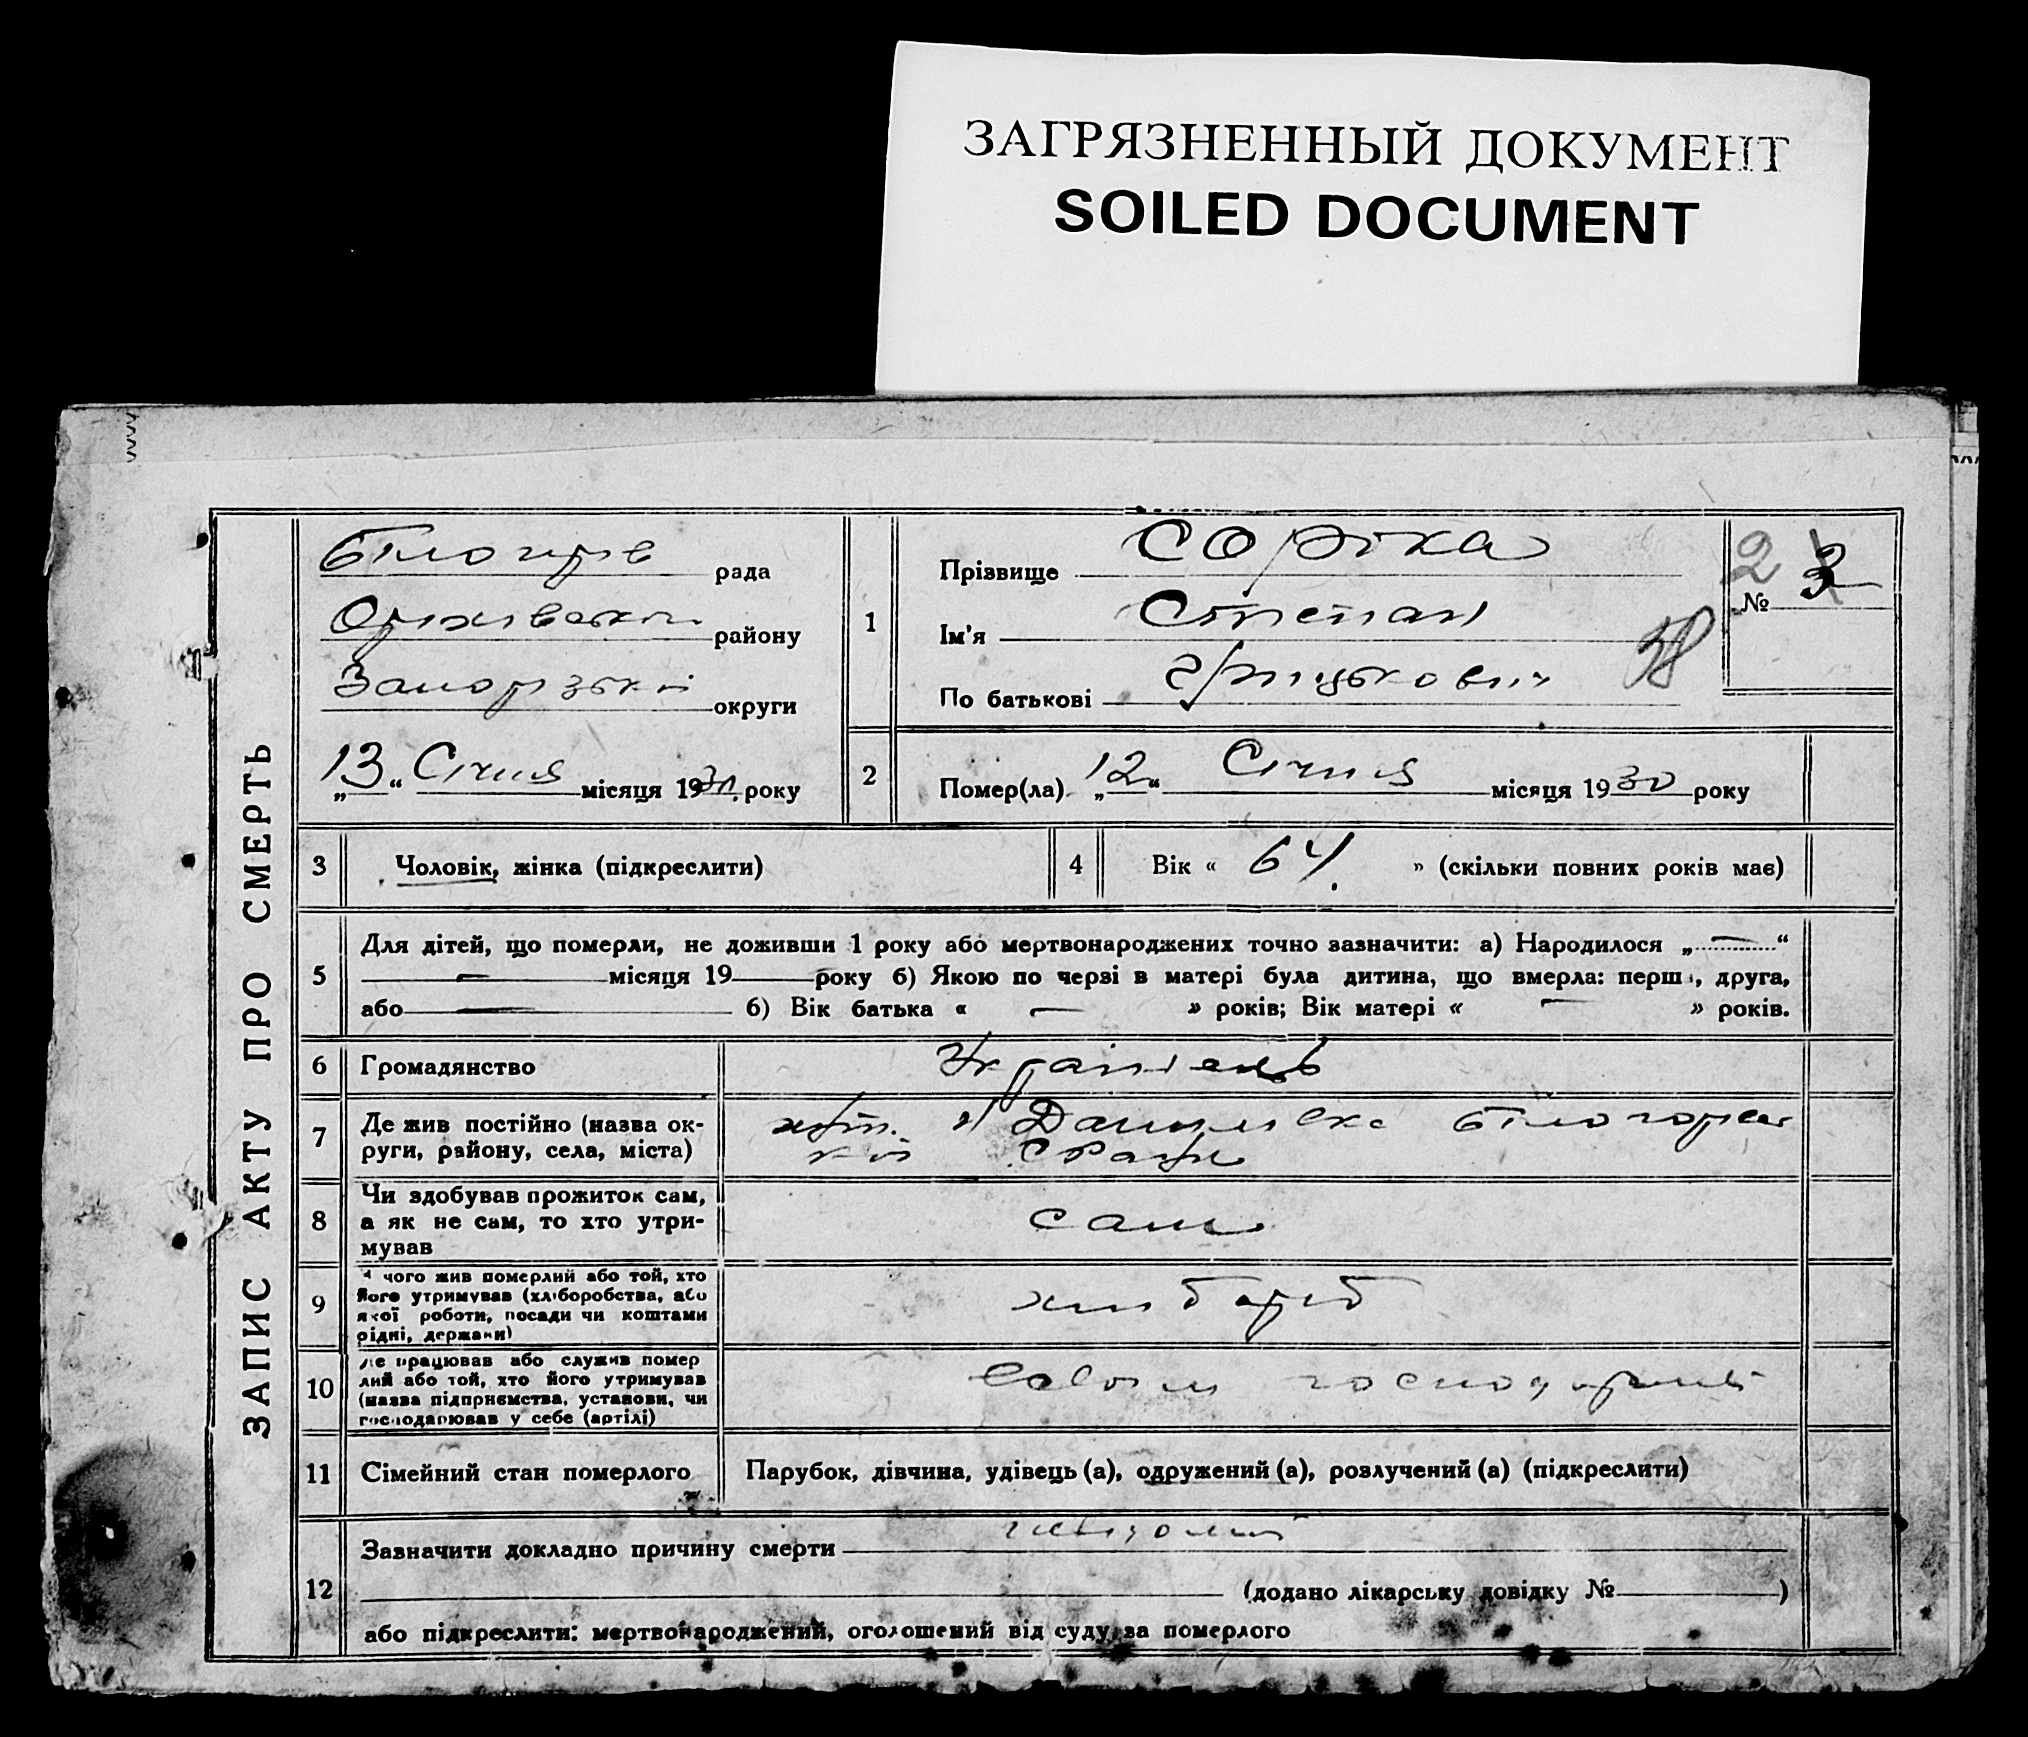 ЗАГРЯЗНЕННЫЙ ДОКУМЕНТ
SOILED DOCUMENT
ЗАПИС АКТУ ПРО СМЕРТЬ
рада
району
Запорізької округи
„13“ Січня місяця 1930 року
1
Прізвище Сорока
Ім'я Степан
По батькові Грицькович
38
2
№ 2
2
Помер(ла) „12“ Січня місяця 1930 року
3
Чоловік, жінка (підкреслити)
4
Вік « 64 » (скільки повних років має)
5
Для дітей, що померли, не доживши 1 року або мертвонароджених точно зазначити: а) Народилося „ — “
— місяця 19 року б) Якою по черзі в матері була дитина, що вмерла: перш, друга,
або — б) Вік батька « — » років; Вік матері « — » років.
6
Громадянство
7
Де жив постійно (назва ок-
руги, району, села, міста)
Данилівка
8
Чи здобував прожиток сам,
а як не сам, то хто утри-
мував
сам
9
чого жив померлий або той, хто
його утримував (хліборобства, або
якої роботи, посади чи коштами
рідні, держави)
хлібороб
10
Де працював або служив помер
лий або той, хто його утримував
(назва підприємства, установи, чи
господарював у себе (артілі)
11
Сімейний стан померлого
Парубок, дівчина, удівець (а), одружений (а), розлучений (а) (підкреслити)
12
Зазначити докладно причину смерти
(додано лікарську довідку № )
або підкреслити: мертвонароджений, оголошений від суду за померлого